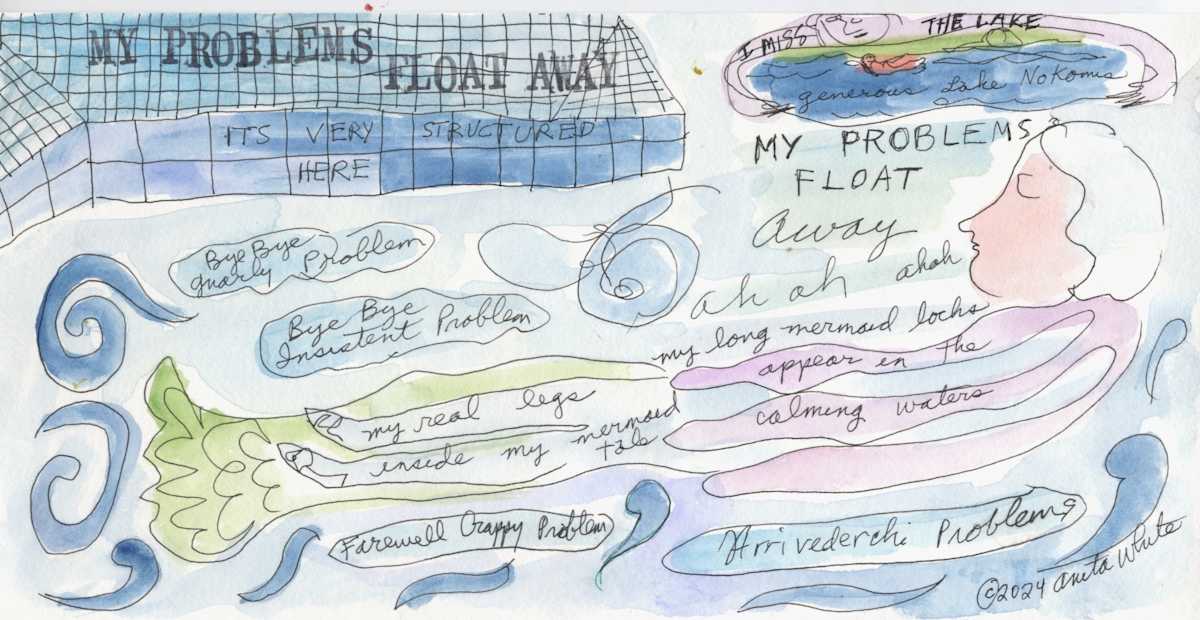 MY PROBLEMS
FLOAT AWAY
ITS VERY STRUCTURED
HERE
I MISS THE LAKE
generous Lake Nokomis
MY PROBLEMS
FLOAT
Away
ah ah ahah
Bye Bye
gnarly Problem
Bye Bye
Insistent Problem
my long mermaid locks
appear in the
calming waters
my real legs
inside my mermaid
Farewell Crappy Problem
Arrivederchi Problems
©2024 Anita White